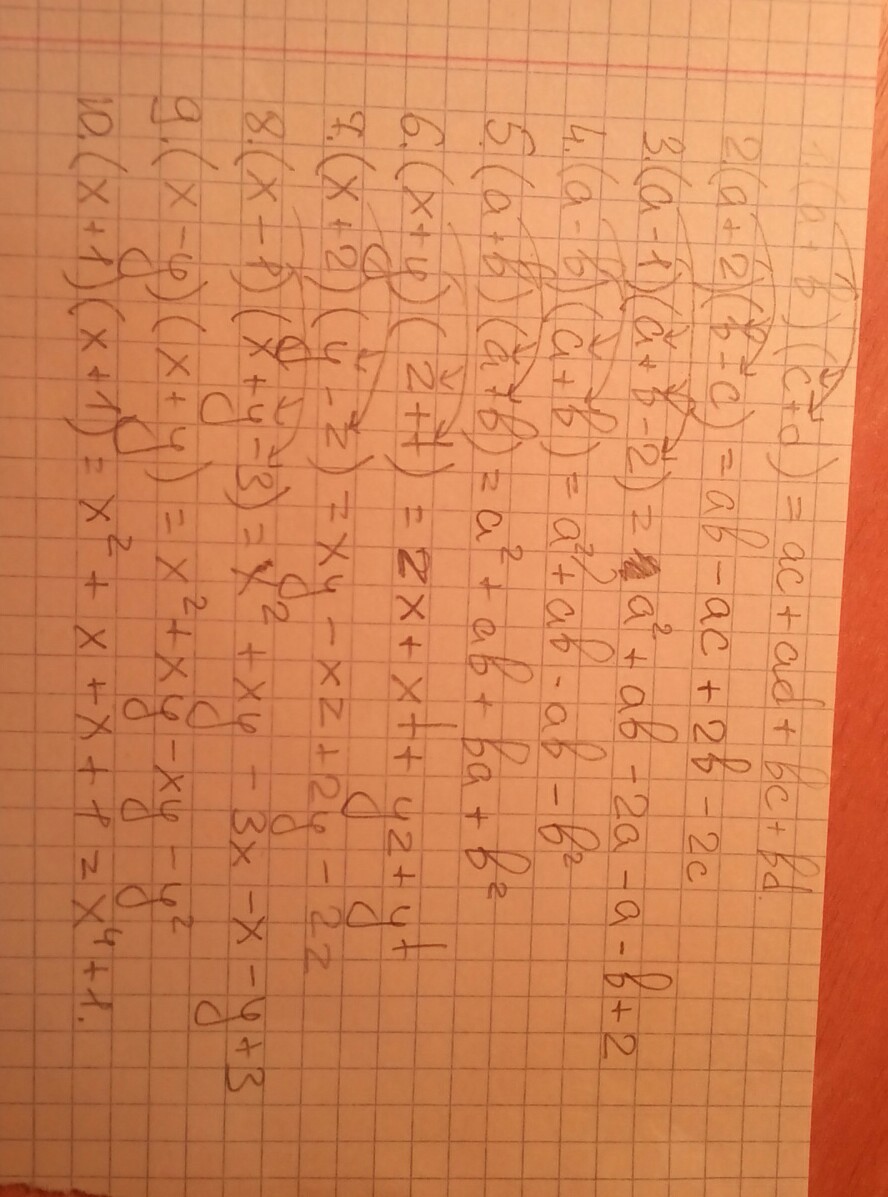 1. (a+b)(c+d) = ac + ad + bc + bd.
2. (a+2)(b-c) = ab - ac + 2b - 2c
3. (a-1)(a+b-2) = a² + ab - 2a - a - b + 2
4. (a-b)(a+b) = a² + ab - ab - b²
5. (a+b)(a+b) = a² + ab + ba + b²
6. (x+y)(z+t) = zx + xt + yz + yt
7. (x+2)(y-z) = xy - xz + 2y - 2z
8. (x-1)(x+y-3) = x² + xy - 3x - x - y + 3
9. (x-y)(x+y) = x² + xy - xy - y²
10. (x+1)(x+1) = x² + x + x + 1 = x⁴ + 1.